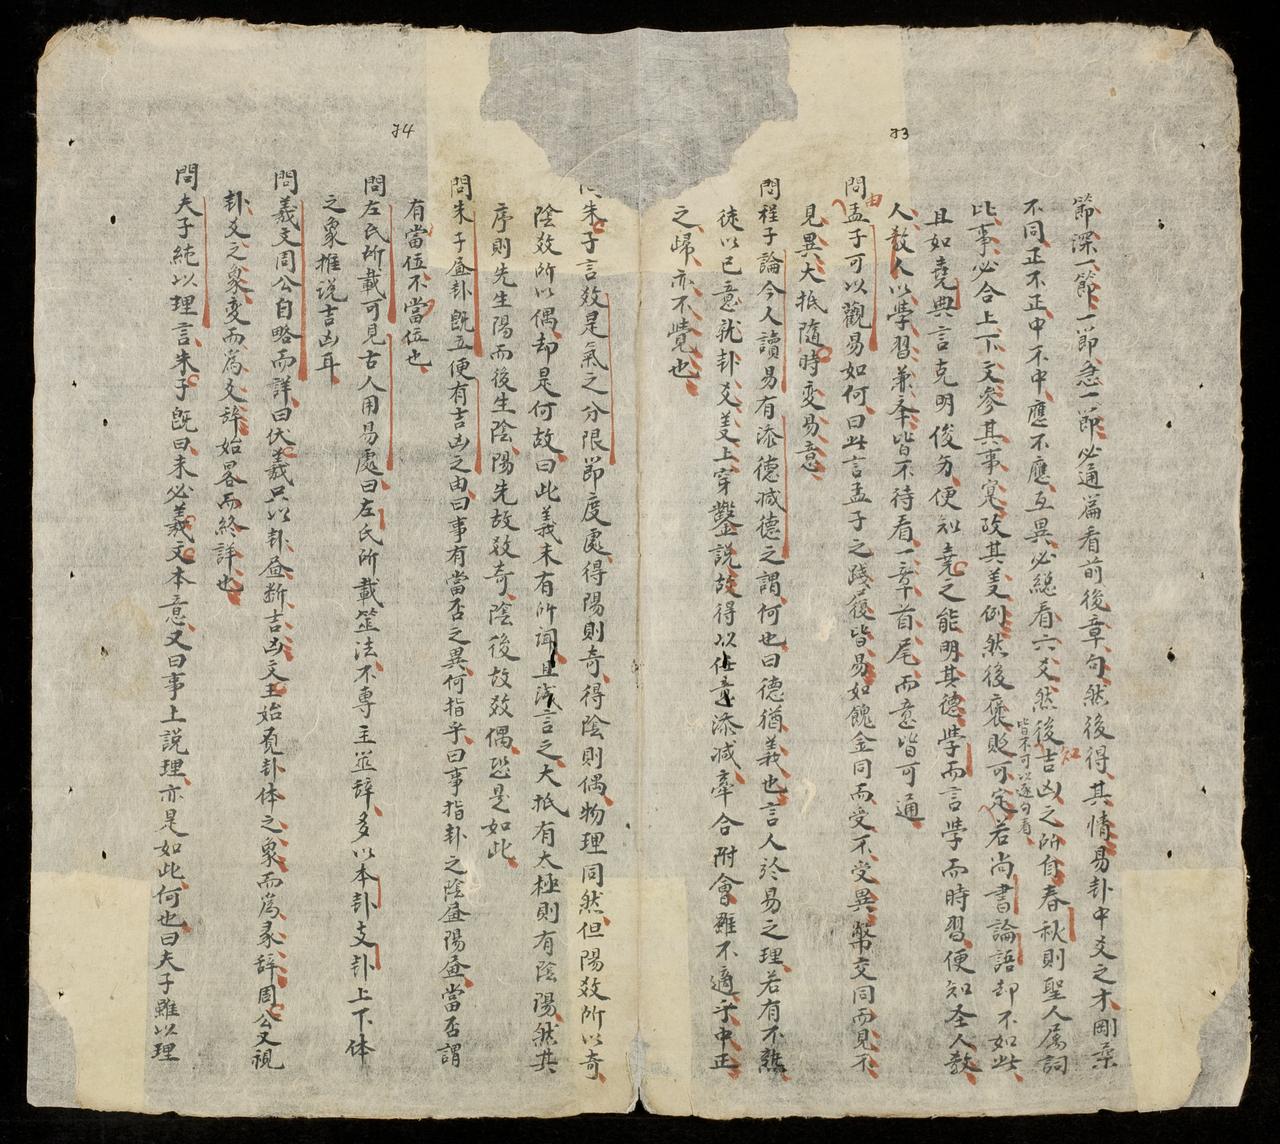 73
節深一節一節急一節必通篇看前後章句然後得其情易卦中爻之才剛柔
不同正不正中不中應不應互異必總看六爻然後知吉凶之所自春秋則聖人屬詞
比事必合上下文參其事寔攷其美例然後褒貶可定皆不可以逐句看若尚書論語却不如此
且如堯典言克明俊旁便知堯之能明其德學而言學而時習便知圣人教
人教人以學習兼夆皆不待看一章首尾而意皆可通
問孟子可以觀易如何曰此言孟子之踐履皆易如餽金同而受不受異幣交同而見不
見異大抵隨時变易意
問程子論今人讀易有添德减德之謂何也曰德猶義也言人於易之理若有不熟
徒以已意就卦爻美上穿鑿説故得以任意添減牽合附會雖不適乎中正
之歸亦不覺也
問朱子言效是氣之分限節度處得陽則奇得陰則偶物理同然但陽效所以奇
陰效所以偶却是何故曰此義未有所聞且淺言之大抵有太極則有陰陽然其
序則先生陽而後生陰陽先故效奇陰後故效偶恐是如此
74
問朱子畫卦旣立便有吉凶之由曰事有當否之異何指乎曰事指卦之陰畫陽畫當否謂
有當位不當位也
問左氏所載可見古人用易處曰左氏所載筮法不專主筮辞多以本卦支卦上下体
之象推説吉凶耳
問羲文周公自略而詳曰伏羲只以卦畫断吉凶文王始覔卦体之象而爲彖辞周公又視
卦爻之象変而爲爻辞始畧而終詳也
問夫子純以理言朱子旣曰未必羲文本意又曰事上説理亦是如此何也曰夫子雖以理